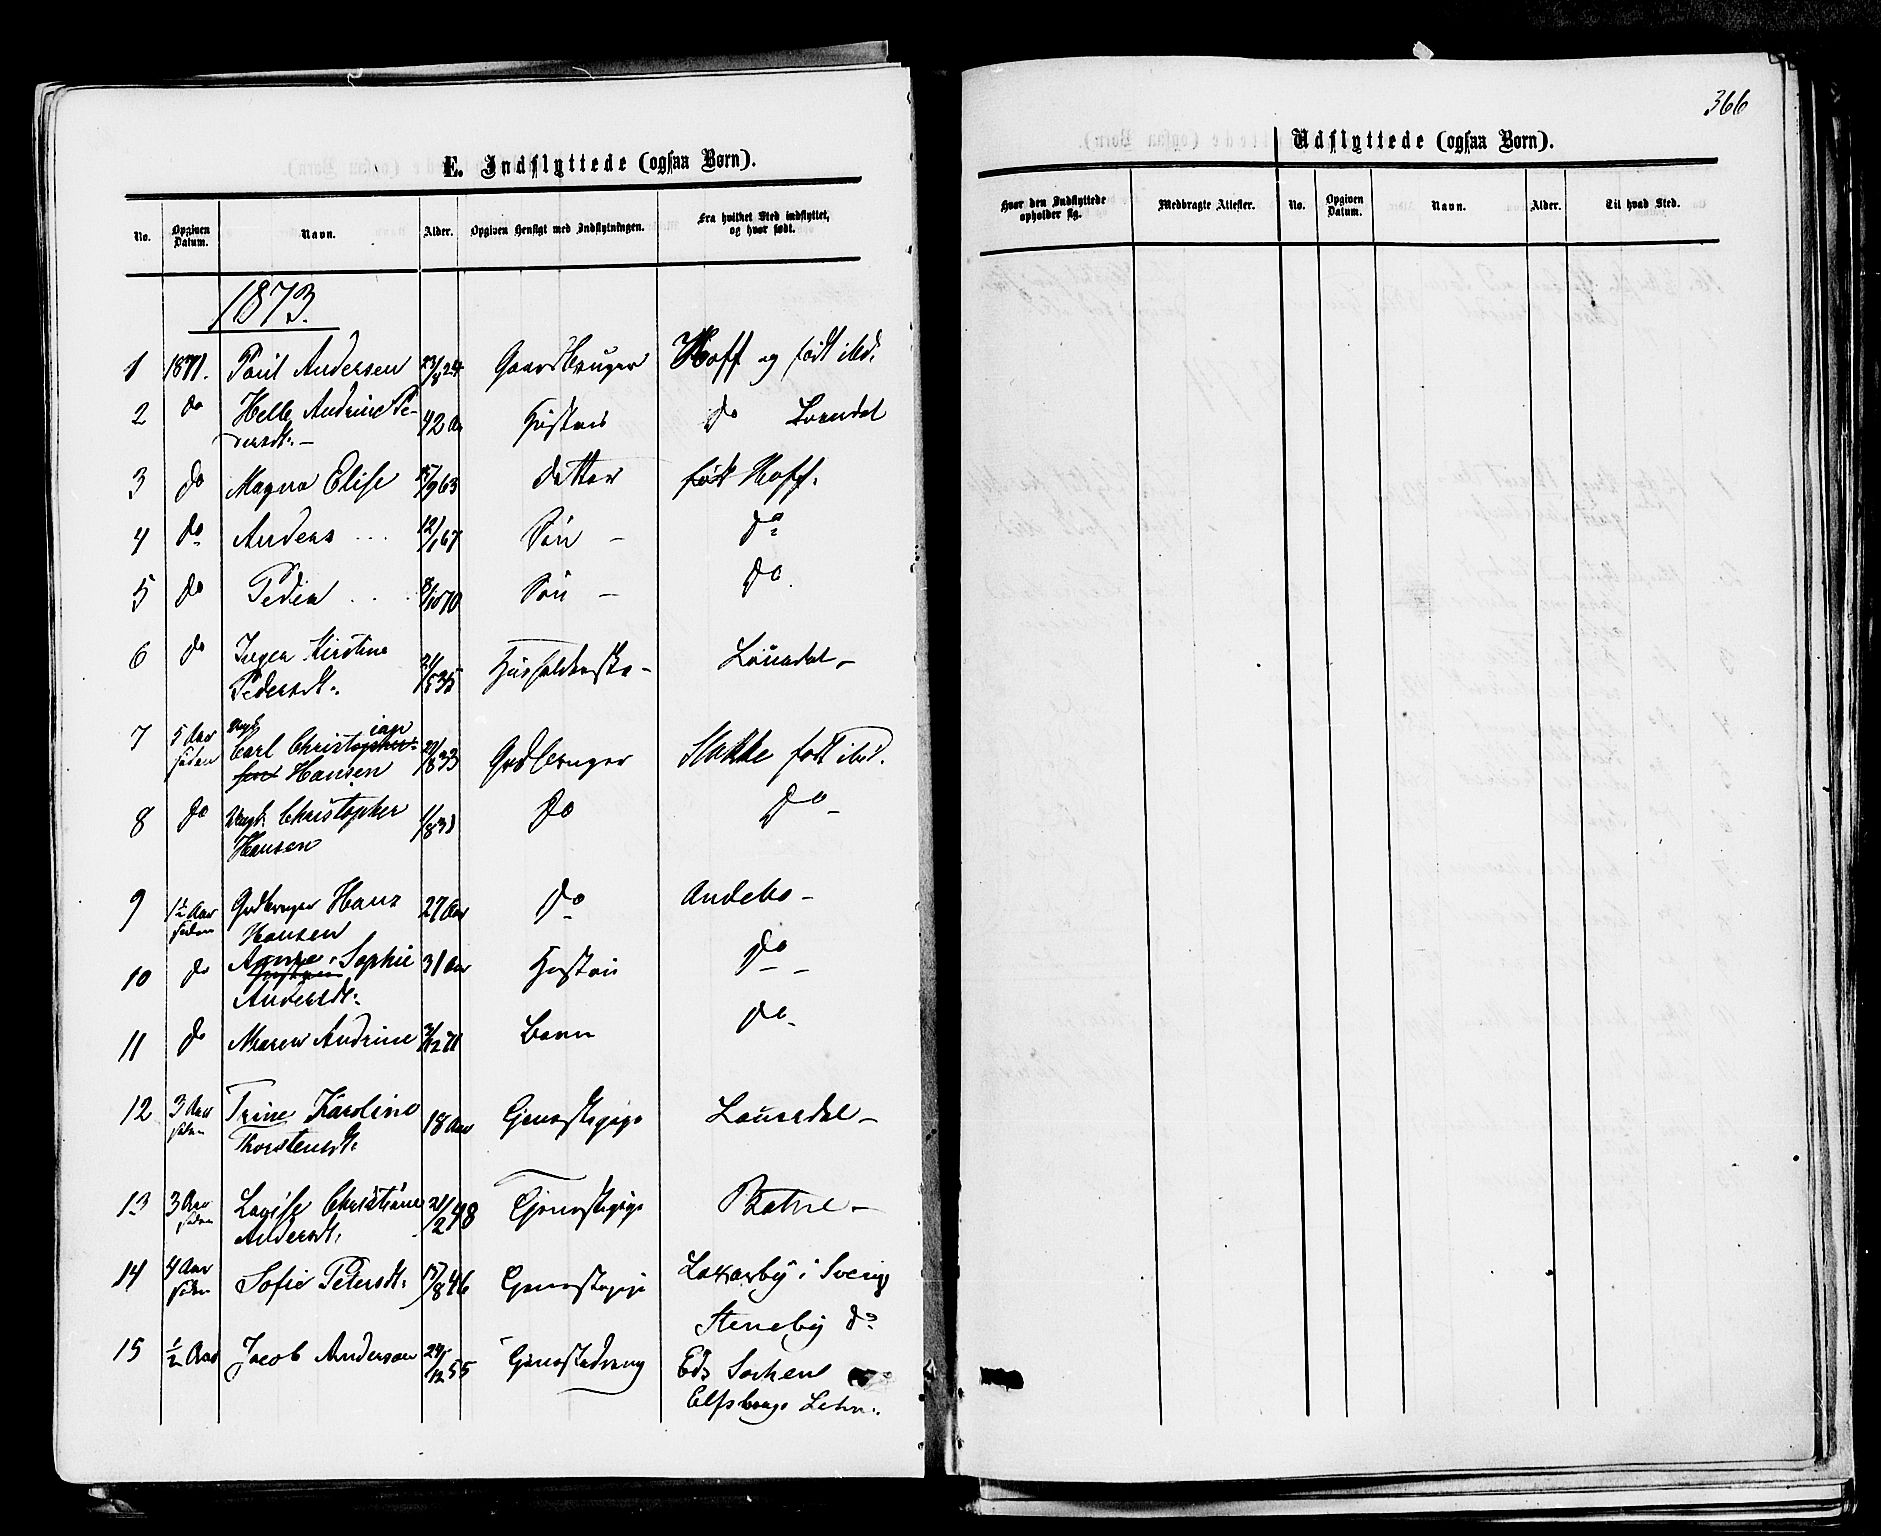 366
E. Indflyttede (ogsaa Børn).
Udflyttede (ogsaa Børn).
No. Opgiven Datum. Navn. Alder. Opgiven Hensigt med Indflytningen. Fra hvilket Sted indflyttet, og hvor født.
Hvor den Indflyttede opholder sig. Medbragte Attester. No. Opgiven Datum. Navn. Alder. Til hvad Sted.
1873.
1 1871. Poul Andersen 23/8 24 Gaardbruger Hoff og født ibd.
2 do Helle Andrine Pe-
dersdt. 42 Aa Hustru do Laurdal
3 do Magna Elise 15/9 63 datter født Hoff.
4 do Anders 12/1 67 Søn do
5 do Peder 8/10 70 Søn do
6 do Inger Kirstine
Pedersdt. 21/5 35 Husholderske Laurdal
7 5 Aar siden Ungk. Carl Christian
Hansen 22/8 33 Gdbruger Stokke født ibid.
8 do Ungk. Christopher
Hansen 1/8 31 do do
9 1½ Aar siden Gdbruger Hans
Hansen 27 Aar do Andebo
10 do Anne Sophie
Andersdt. 31 Aar Hustru do
11 do Maren Andrine 2/12 71 Barn do
12 3 Aar siden Trine Karoline
Thorstensdt. 18 Aar Tjenestepige Laurdal
13 3 Aar siden Lovise Christiane
Andersdt. 21/2 48 Tjenestepige Botne
14 4 Aar siden Sofie Petersdt. 15/8 46 Tjenestepige i Sverig
Steneby do
15 ½ Aar Jacob Anderson 24/12 55 Tjenestedreng Eds Sochen
Elfsborgs Lehn.